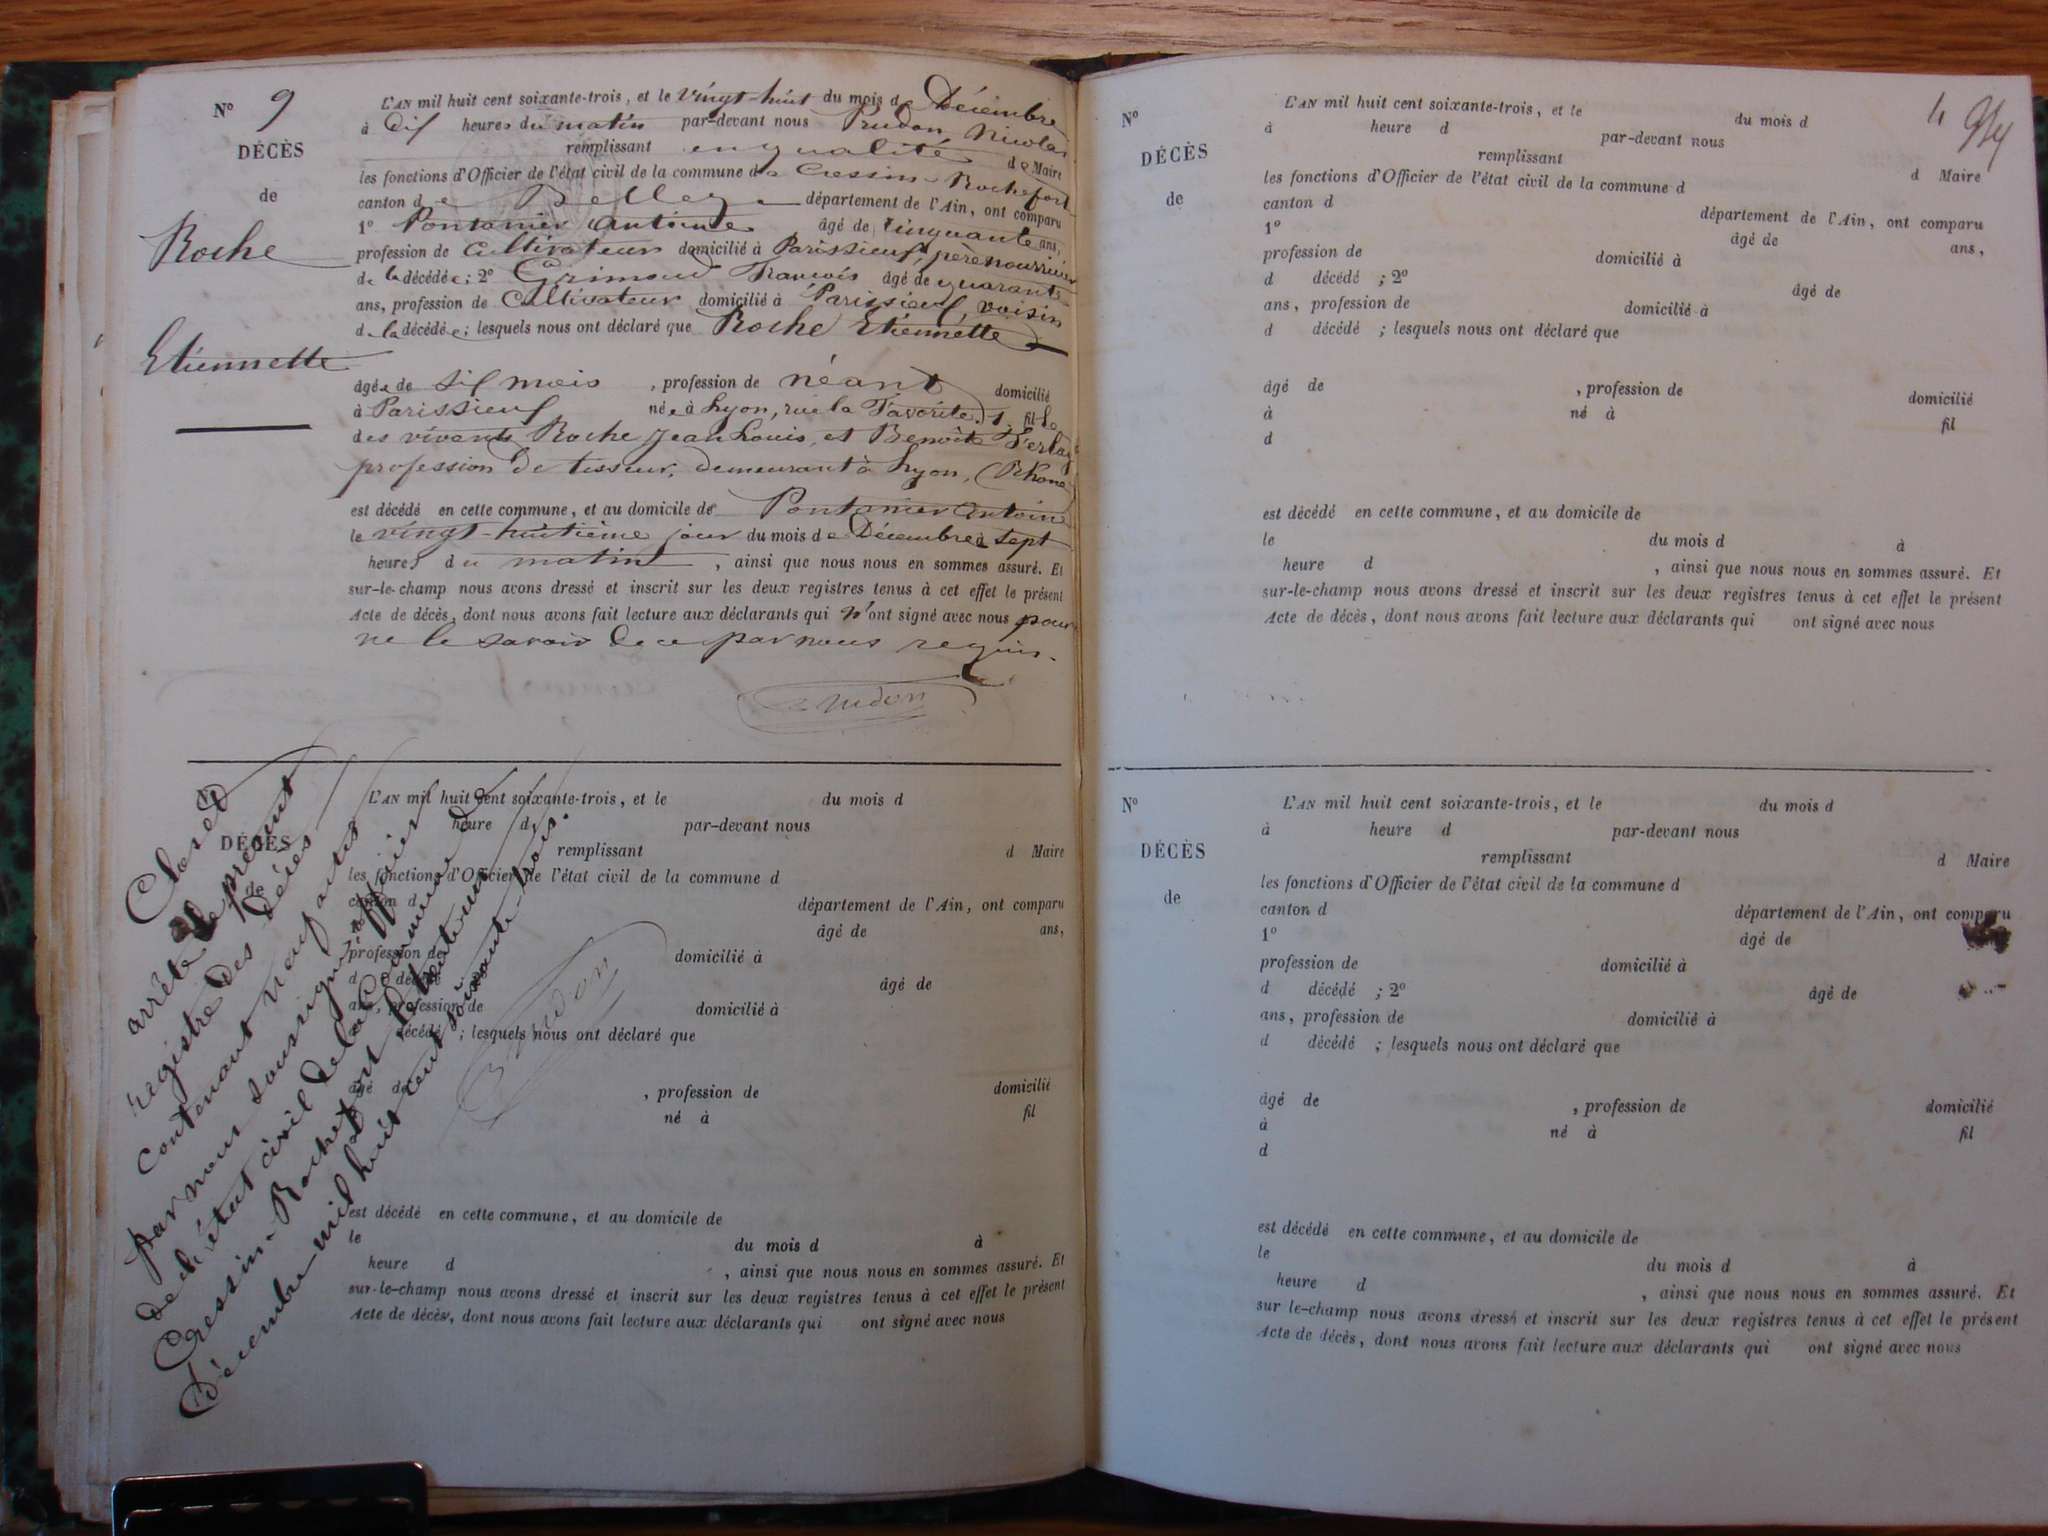 N° 9
DÉCÈS
de
Roche
Etiennette
L'AN mil huit cent soixante-trois, et le vingt-huit du mois de Décembre
à dix heures du matin par-devant nous Prudon Nicolas
remplissant en qualité de Maire
les fonctions d'Officier de l'état civil de la commune de Cressin-Rochefort
canton de Belley département de l'Ain, ont comparu
1° Pontanier Antoine âgé de cinquante ans,
profession de cultivateur domicilié à Parissieux, père nourricier
de la décédée; 2° Grimoud François âgé de quarante
ans, profession de Cultivateur domicilié à Parissieux, voisin
de la décédée; lesquels nous ont déclaré que Roche Etiennette
âgée de six mois, profession de néant domicilié
à Parissieux née à Lyon, rue la Favorite, 1. fille
des vivants Roche Jean Louis, et Benoîte
profession de tisseur, demeurant à Lyon, (Rhône
est décédé en cette commune, et au domicile de Pontanier Antoine
le vingt-huitième jour du mois de Décembre à sept
heures du matin, ainsi que nous nous en sommes assuré. Et
sur-le-champ nous avons dressé et inscrit sur les deux registres tenus à cet effet le présent
Acte de décès, dont nous avons fait lecture aux déclarants qui n'ont signé avec nous pour
ne le savoir de ce par nous requis.
Prudon
N°
DÉCÈS
de
L'AN mil huit cent soixante-trois, et le du mois d
heure d par-devant nous
remplissant d Maire
les fonctions d'Officier de l'état civil de la commune d
canton d département de l'Ain, ont comparu
âgé de ans,
profession de domicilié à
d décédé âgé de
ans, profession de domicilié à
décédé ; lesquels nous ont déclaré que
âgé de , profession de domicilié
né à fil
est décédé en cette commune, et au domicile de
le du mois d à
heure d , ainsi que nous nous en sommes assuré. Et
sur-le-champ nous avons dressé et inscrit sur les deux registres tenus à cet effet le présent
Acte de décès, dont nous avons fait lecture aux déclarants qui ont signé avec nous
Clos et
arrêté le présent
registre des Décès
contenant neuf actes
par nous soussigné, officier
de l'état civil de la Commune de
Cressin-Rochefort le trente un
Décembre mil huit cent soixante-trois.
Prudon
4
N°
DÉCÈS
de
L'AN mil huit cent soixante-trois, et le du mois d
à heure d par-devant nous
remplissant d Maire
les fonctions d'Officier de l'état civil de la commune d
canton d département de l'Ain, ont comparu
1° âgé de ans,
profession de domicilié à
d décédé ; 2° âgé de
ans, profession de domicilié à
d décédé ; lesquels nous ont déclaré que
âgé de , profession de domicilié
à né à fil
d
est décédé en cette commune, et au domicile de
le du mois d à
heure d , ainsi que nous nous en sommes assuré. Et
sur-le-champ nous avons dressé et inscrit sur les deux registres tenus à cet effet le présent
Acte de décès, dont nous avons fait lecture aux déclarants qui ont signé avec nous
N°
DÉCÈS
de
L'AN mil huit cent soixante-trois, et le du mois d
à heure d par-devant nous
remplissant d Maire
les fonctions d'Officier de l'état civil de la commune d
canton d département de l'Ain, ont comparu
1° âgé de
profession de domicilié à
d décédé ; 2° âgé de
ans, profession de domicilié à
d décédé ; lesquels nous ont déclaré que
âgé de , profession de domicilié
à né à fil
d
est décédé en cette commune, et au domicile de
le du mois d à
heure d , ainsi que nous nous en sommes assuré. Et
sur le-champ nous avons dressé et inscrit sur les deux registres tenus à cet effet le présent
Acte de décès, dont nous avons fait lecture aux déclarants qui ont signé avec nous